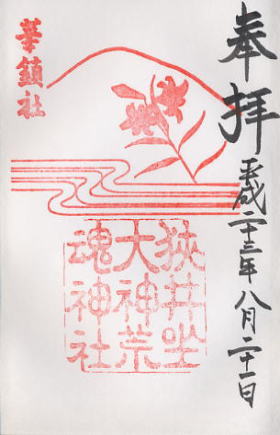 奉拝
平成二十三年八月二十一日
華鎮社
狭井坐
大神荒
魂神社